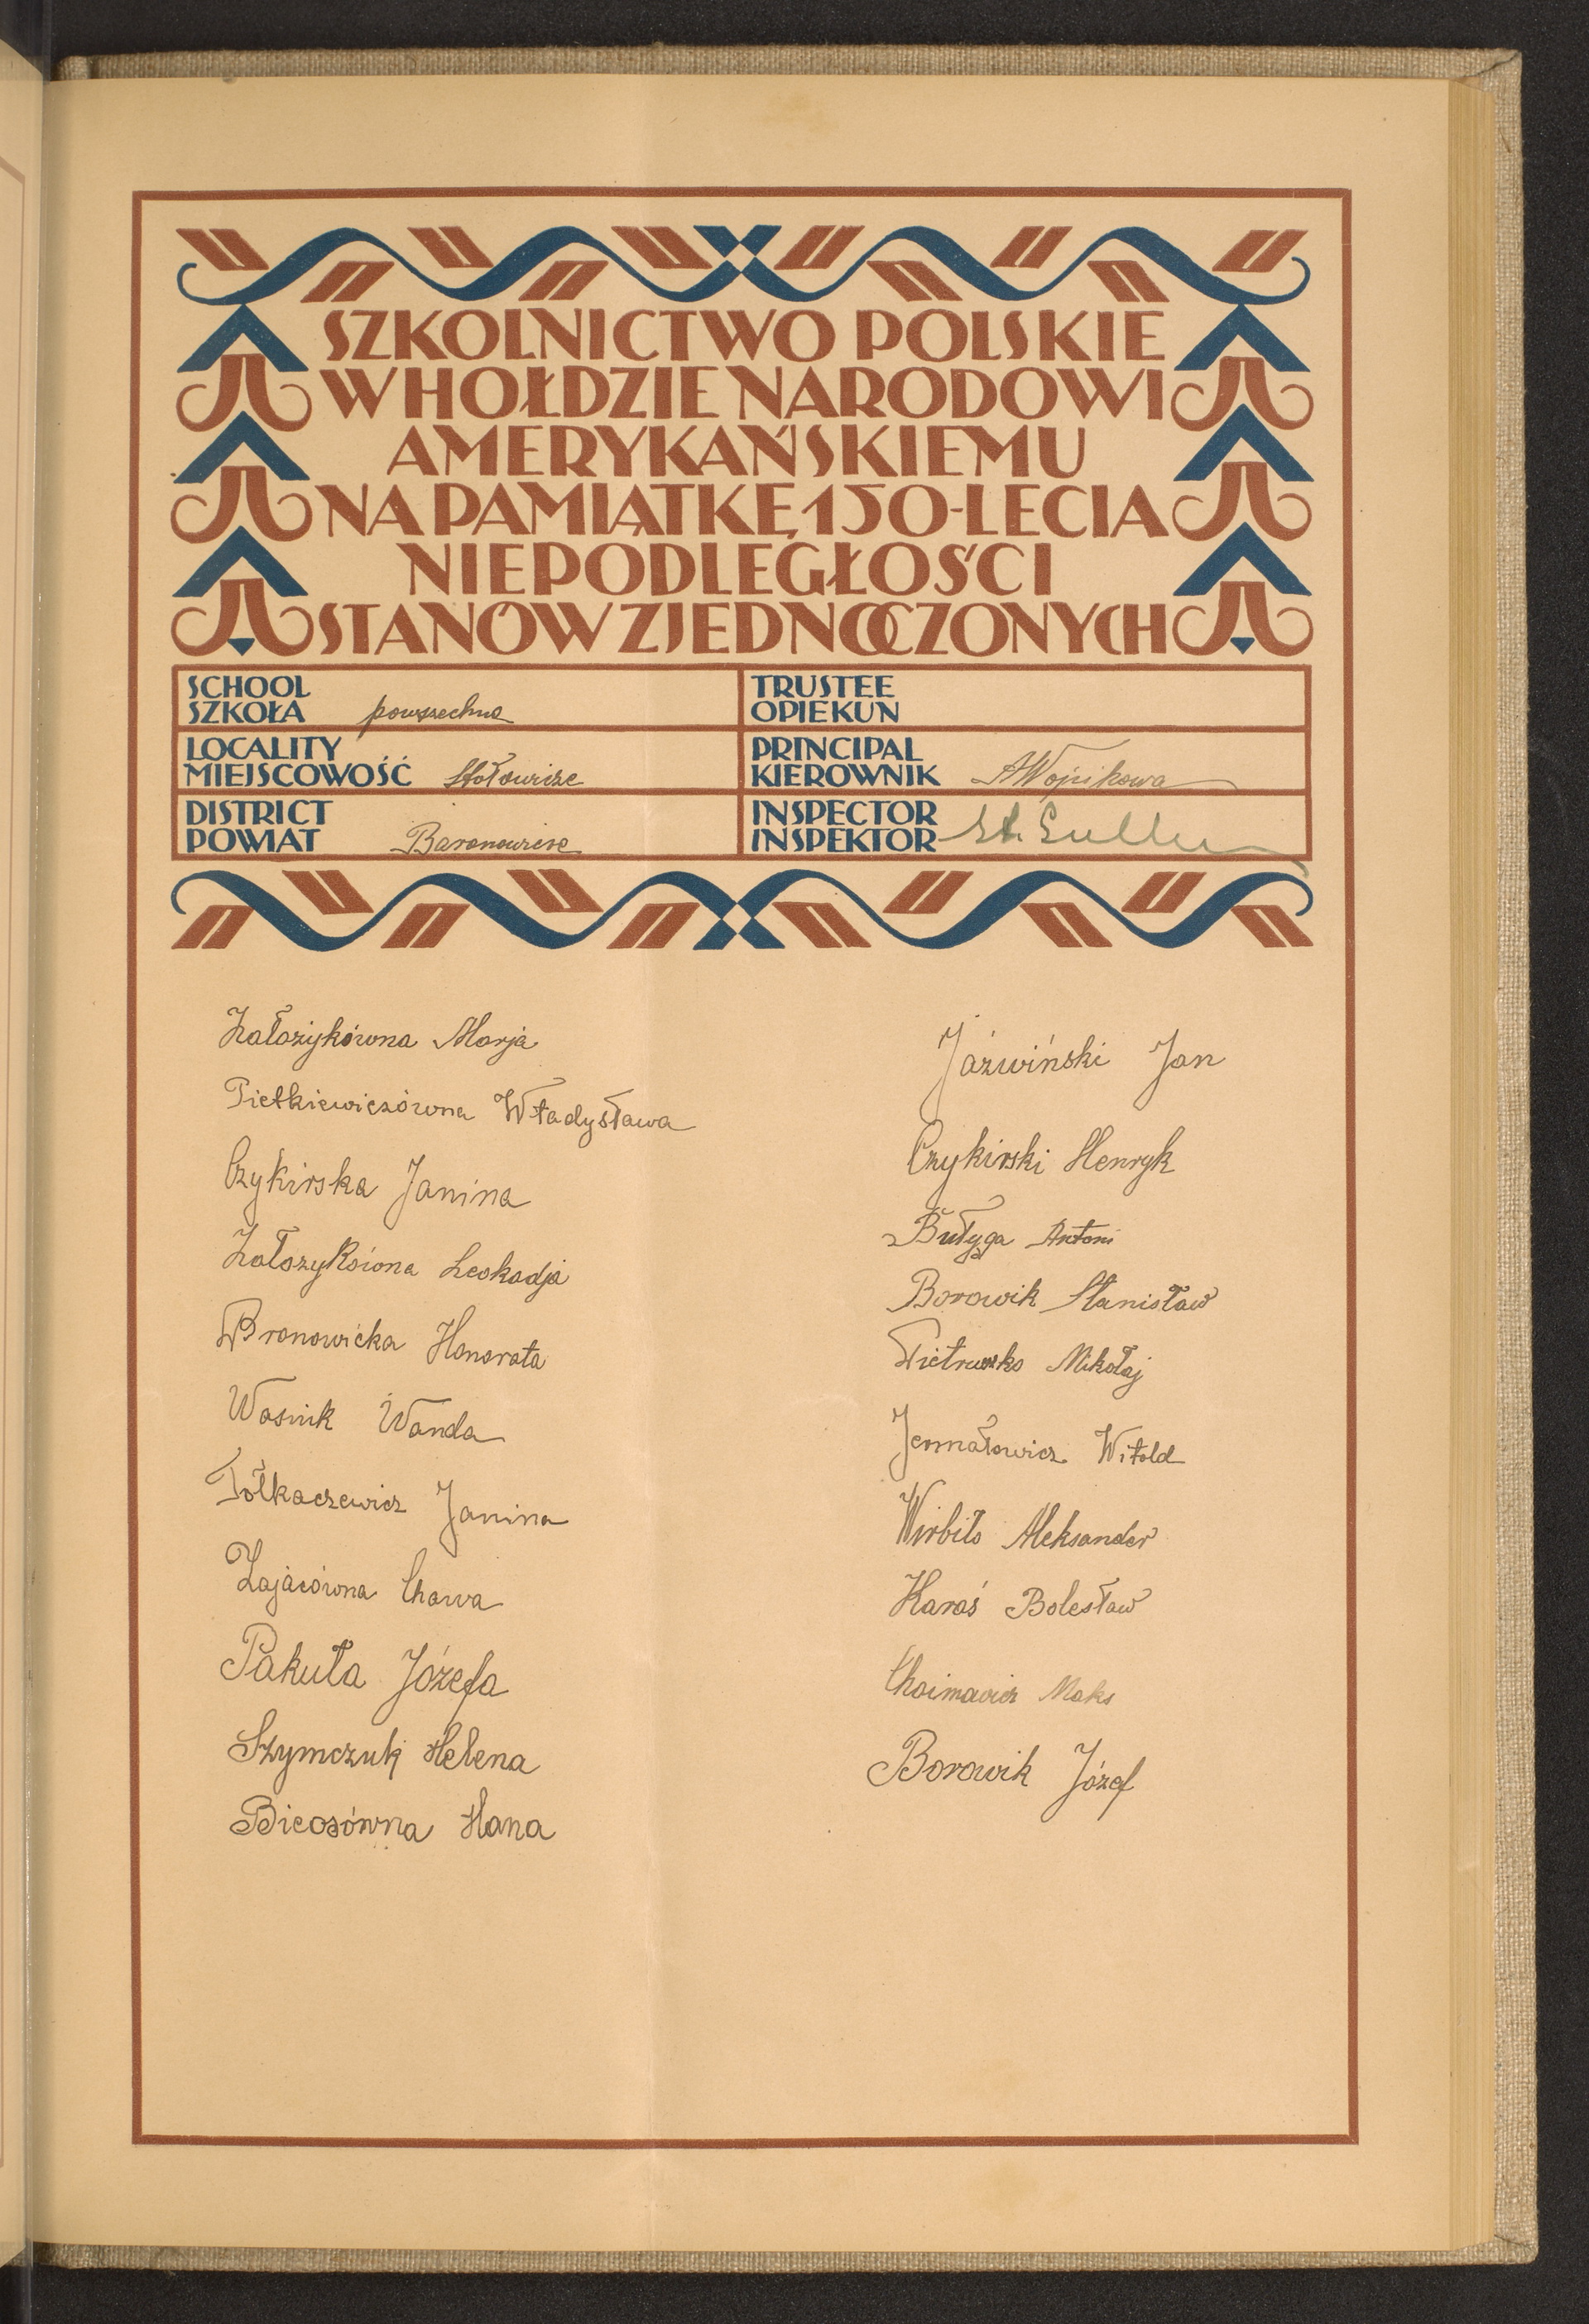 SZKOLNICTWO POLSKIE
W HOŁDZIE NARODOWI
AMERYKAŃSKIEMU
NA PAMIĄTKĘ 150-LECIA
NIEPODLEGŁOŚCI
STANÓW ZJEDNOCZONYCH
SCHOOL
SZKOŁA powszechna
TRUSTEE
OPIEKUN
LOCALITY
MIEJSCOWOŚĆ Stołowicze
PRINCIPAL
KIEROWNIK AWojnikowa
DISTRICT
POWIAT Baranowicze
INSPECTOR
INSPEKTOR St.
Załozykówna Marja
Pietkiewiczówna Władysława
Czykirska Janina
Załozykówna Leokadja
Bronowicka Honorata
Wosnik Wanda
Tołkaczewicz Janina
Zającówna Chawa
Pakuła Józefa
Szymczuk Helena
Bieosówna Hana
Jaźwiński Jan
Czykirski Henryk
Bułyga Antoni
Borowik Stanisław
Pietruszko Mikołaj
Jermałowicz Witold
Wirbiło Aleksander
Karaś Bolesław
Chaimowicz Maks
Borowik Józef